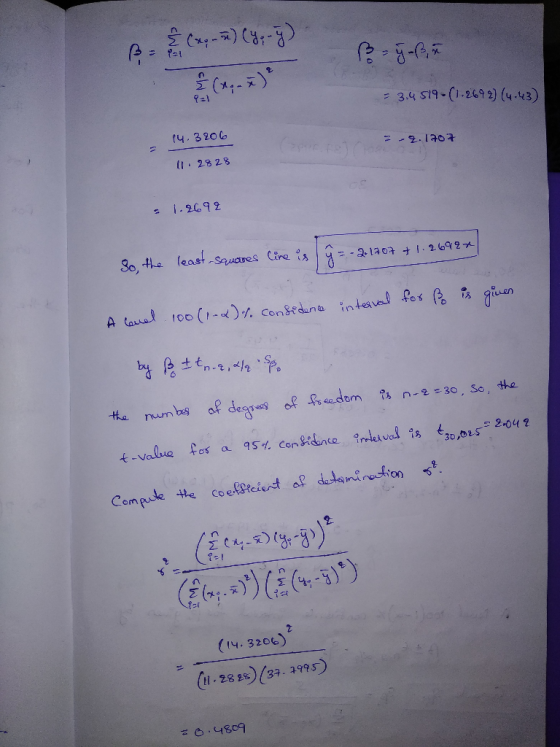 β₁ = Σᵢ₌₁ⁿ (xᵢ - x̄)(yᵢ - ȳ) / Σᵢ₌₁ⁿ (xᵢ - x̄)²
= 14.3206 / 11.2828
= 1.2692
β₀ = ȳ - β₁x̄
= 3.4519 - (1.2692)(4.43)
= -2.1707
So, the least-squares line is ŷ = -2.1707 + 1.2692x
A level 100(1-α)% confidence interval for β₀ is given
by β₀ ± tₙ₋₂,α/₂ · Sβ₀
the number of degrees of freedom is n-2=30, so, the
t-value for a 95% confidence interval is t₃₀,.₀₂₅ = 2.042
Compute the coefficient of determination r².
r² = (Σᵢ₌₁ⁿ (xᵢ - x̄)(yᵢ - ȳ))² / (Σᵢ₌₁ⁿ (xᵢ - x̄)²)(Σᵢ₌₁ⁿ (yᵢ - ȳ)²)
= (14.3206)² / (11.2828)(37.7995)
= 0.4809